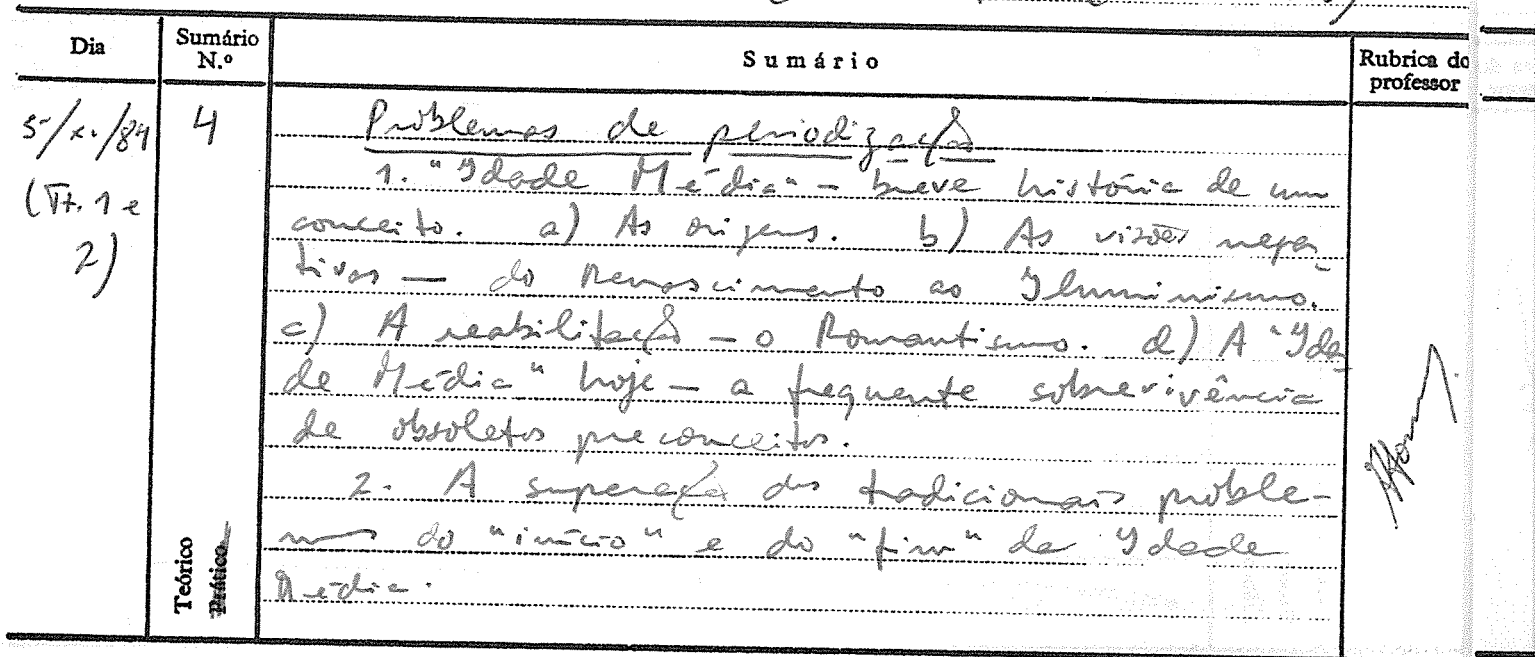 Dia
Sumário N.º
Sumário
Rubrica do professor
5/x./84
(Tt. 1 e
2)
4
Problemas de periodização
1. "Idade Média" – breve história de um
conceito. a) As origens. b) As visões nega-
tivas — do Renascimento ao Iluminismo.
c) A reabilitação – o Romantismo. d) A "Ida
de Média" hoje – a frequente sobrevivência
de obsoletos preconceitos.
2. A superação dos tradicionais proble-
mas do "início" e do "fim" da Idade
Média.
Teórico
Prático